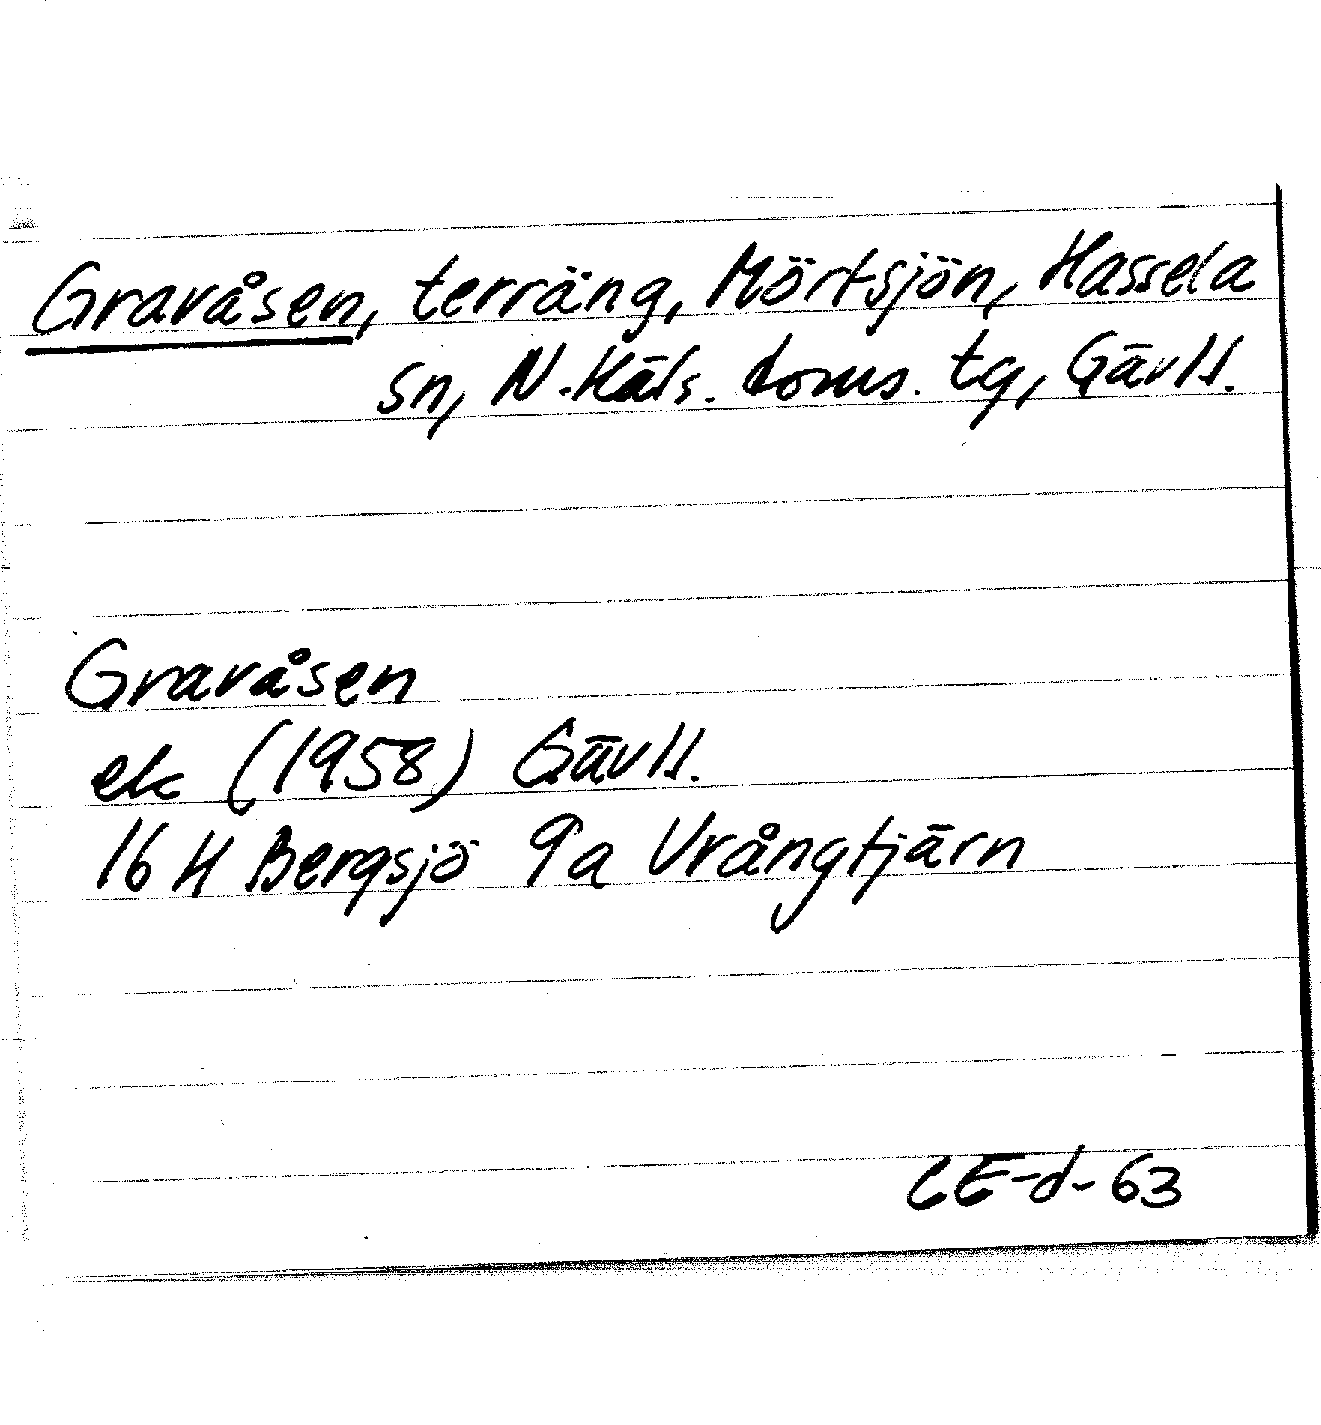 Gravåsen, terräng, Mörtsjön, Hassela
sn, N. Häls. doms. tg, Gävll.
Gravåsen
ek (1958) Gävll.
16 H Bergsjö 9a Vrångtjärn
CE-d-63